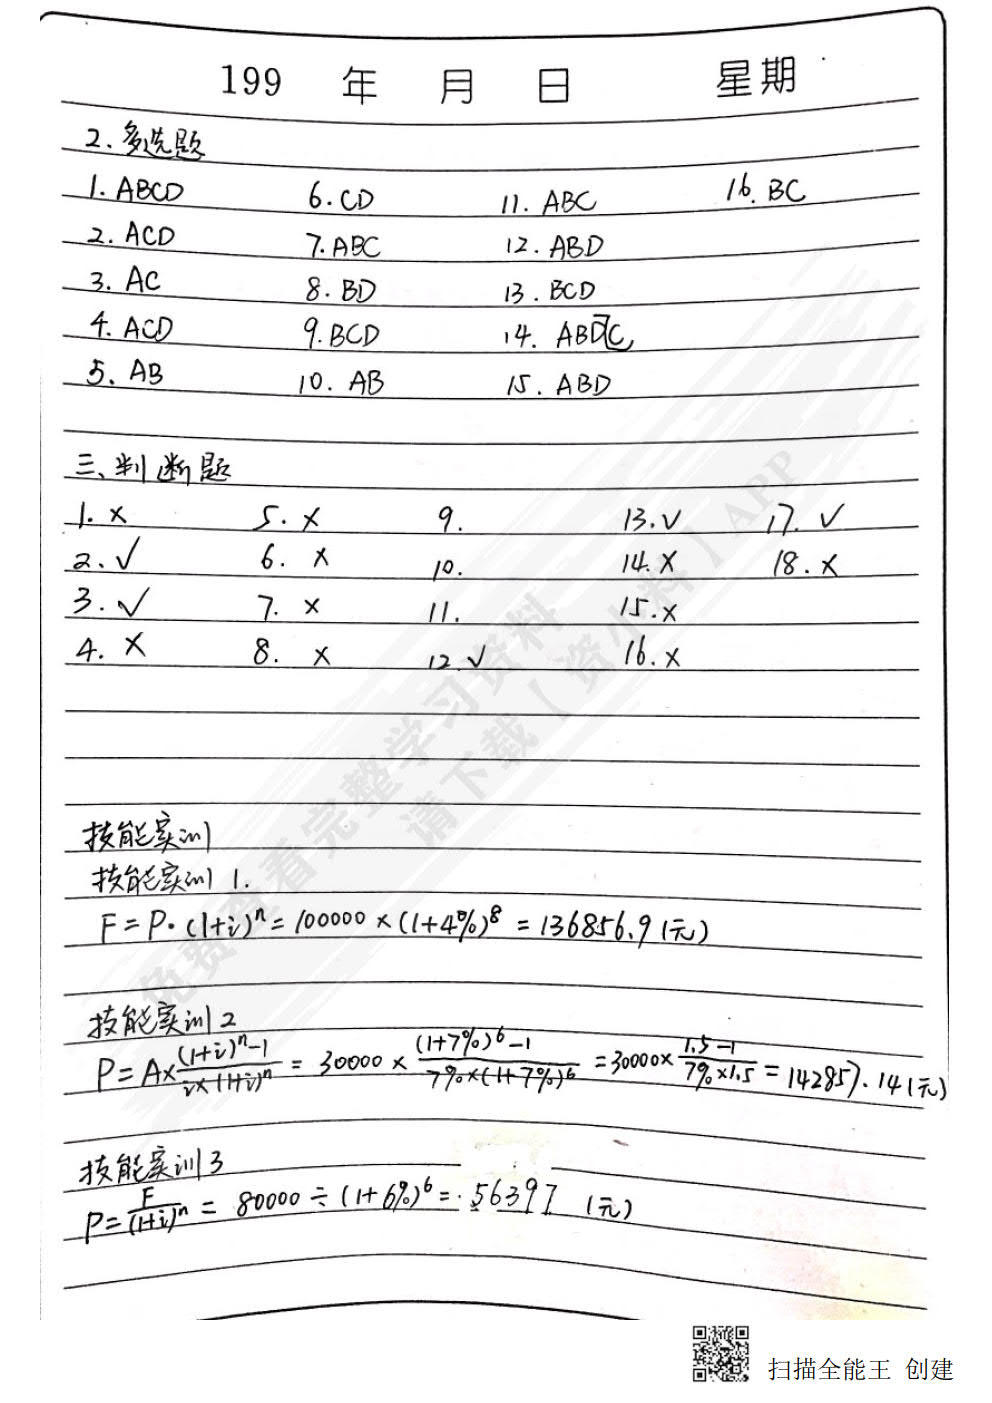 199 年 月 日 星期
2. 多选题
1. ABCD 6. CD 11. ABC 16. BC
2. ACD 7. ABC 12. ABD
3. AC 8. BD 13. BCD
4. ACD 9. BCD 14. ABDC
5. AB 10. AB 15. ABD
三、判断题
1. × 5. × 9. 13. √ 17. √
2. √ 6. × 10. 14. × 18. ×
3. √ 7. × 11. 15. ×
4. × 8. × 12. √ 16. ×
技能实训
技能实训1.
F=P·(1+i)^n=100000×(1+4%)^8=136856.9(元)
技能实训2
P=A×((1+i)^n-1)/(i×(1+i)^n)=30000×((1+7%)^6-1)/(7%×(1+7%)^6)=30000×(1.5-1)/(7%×1.5)=142857.14(元)
技能实训3
P=F/(1+i)^n=80000÷(1+6%)^6=56397(元)
免费查看完整学习资料
请下载【资小料】APP
扫描全能王 创建